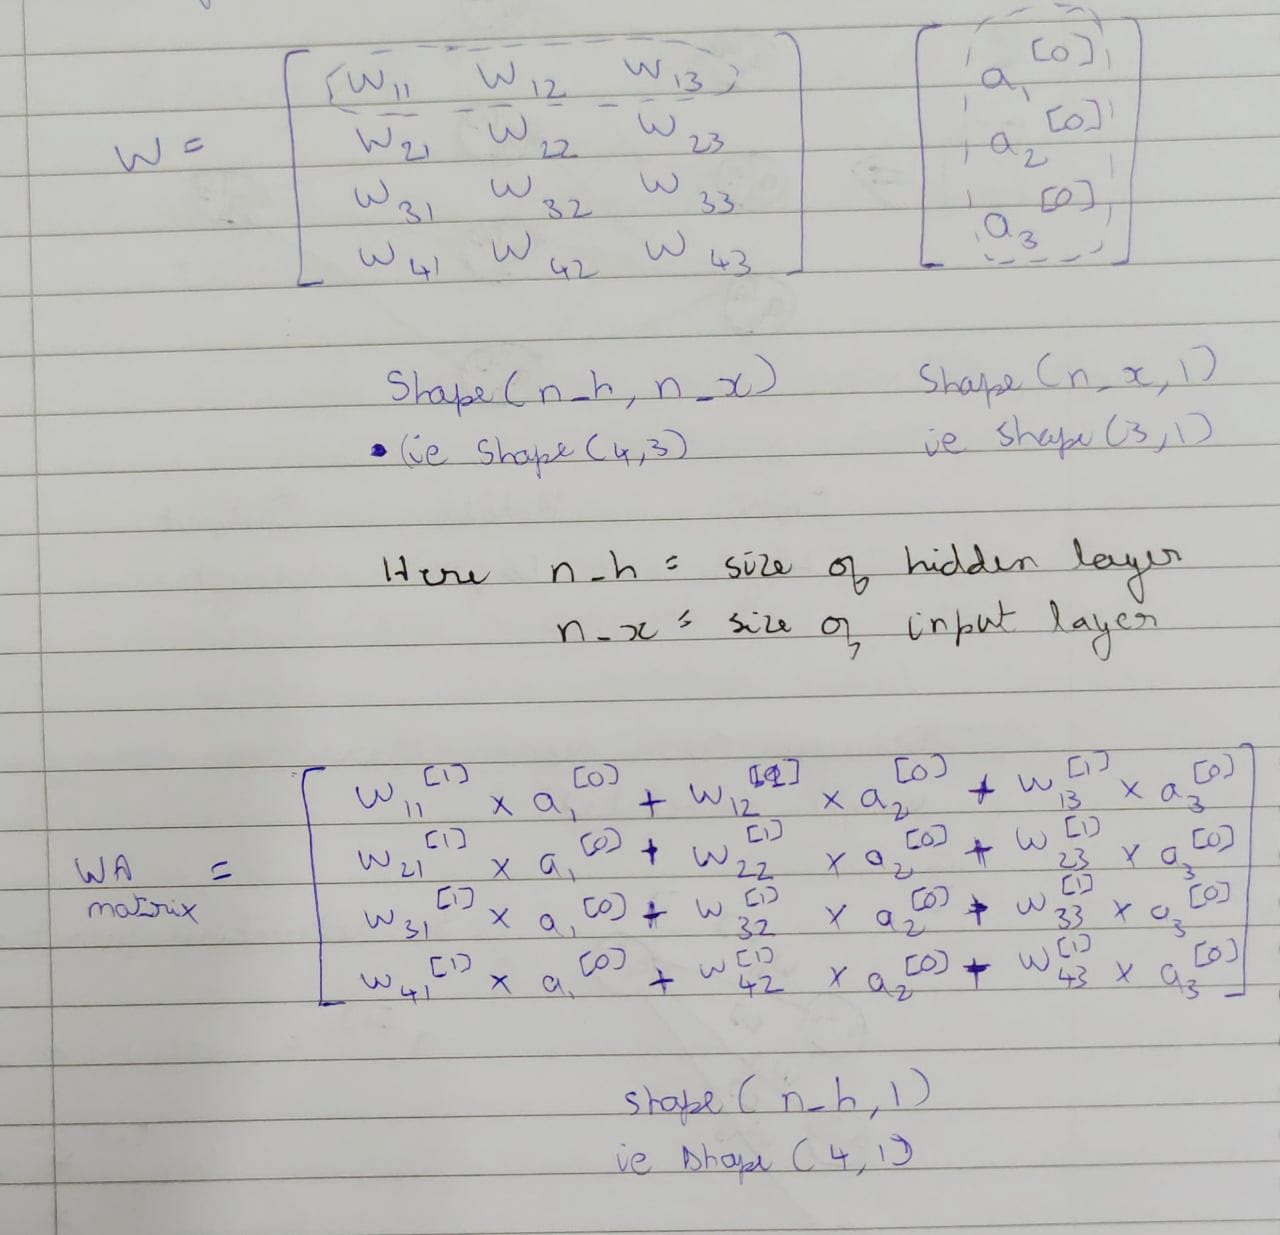 W₁₁ W₁₂ W₁₃ a₁[0]
W = W₂₁ W₂₂ W₂₃ a₂[0]
W₃₁ W₃₂ W₃₃ a₃[0]
W₄₁ W₄₂ W₄₃
Shape(n_h, n_x) Shape(n_x,1)
(ie Shape(4,3) ie Shape(3,1)
Here n_h = size of hidden layer
n_x = size of input layer
W₁₁[1] × a₁[0] + W₁₂[1] × a₂[0] + W₁₃[1] × a₃[0]
WA = W₂₁[1] × a₁[0] + W₂₂[1] × a₂[0] + W₂₃[1] × a₃[0]
matrix W₃₁[1] × a₁[0] + W₃₂[1] × a₂[0] + W₃₃[1] × a₃[0]
W₄₁[1] × a₁[0] + W₄₂[1] × a₂[0] + W₄₃[1] × a₃[0]
shape(n_h,1)
ie shape (4,1)